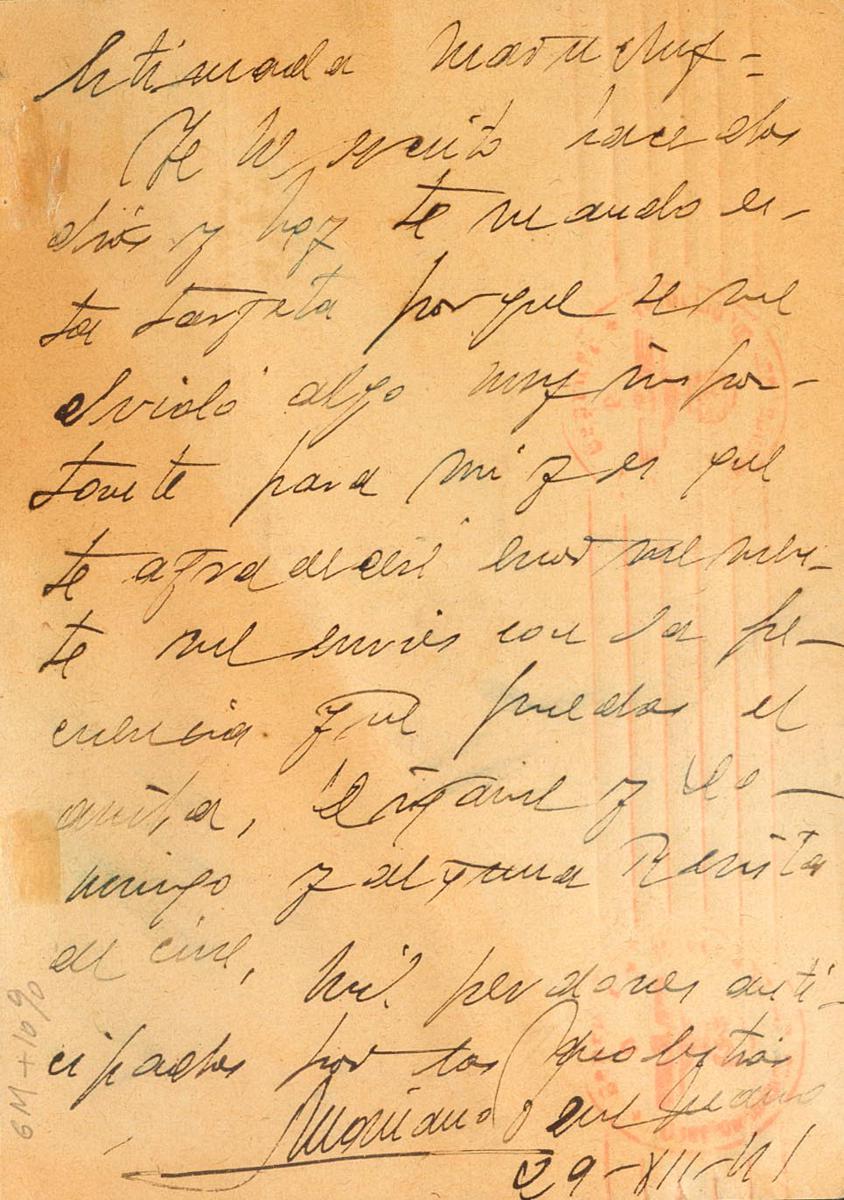 Estimada Maruchy=
Te he escrito hace dos
días y hoy te mando es-
ta tarjeta porque se me
olvidó algo muy impor-
tante para mi y es que
te agradeceré enormemen-
te me envies con la fre-
cuencia que puedas el
y Do-
mingo y alguna Revista
de cine, Mil perdones anti-
cipados por las molestias
Mariano
29-XII-41
6M+10%